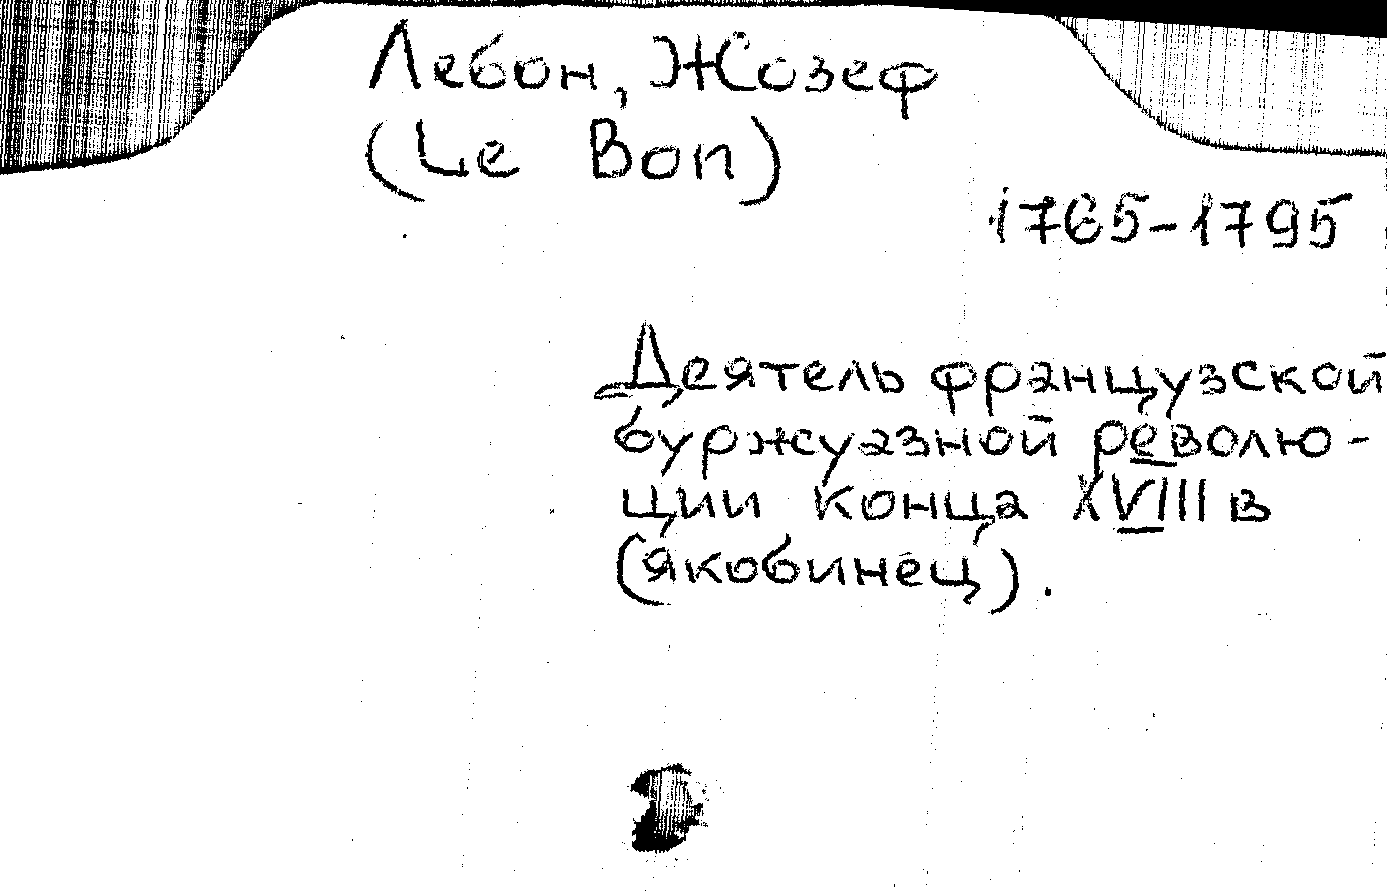 Лебон, Жозеф
(Le Bon)
1765-1795
Деятель французской
буржуазной револю-
ции конца XVIII в
(якобинец).